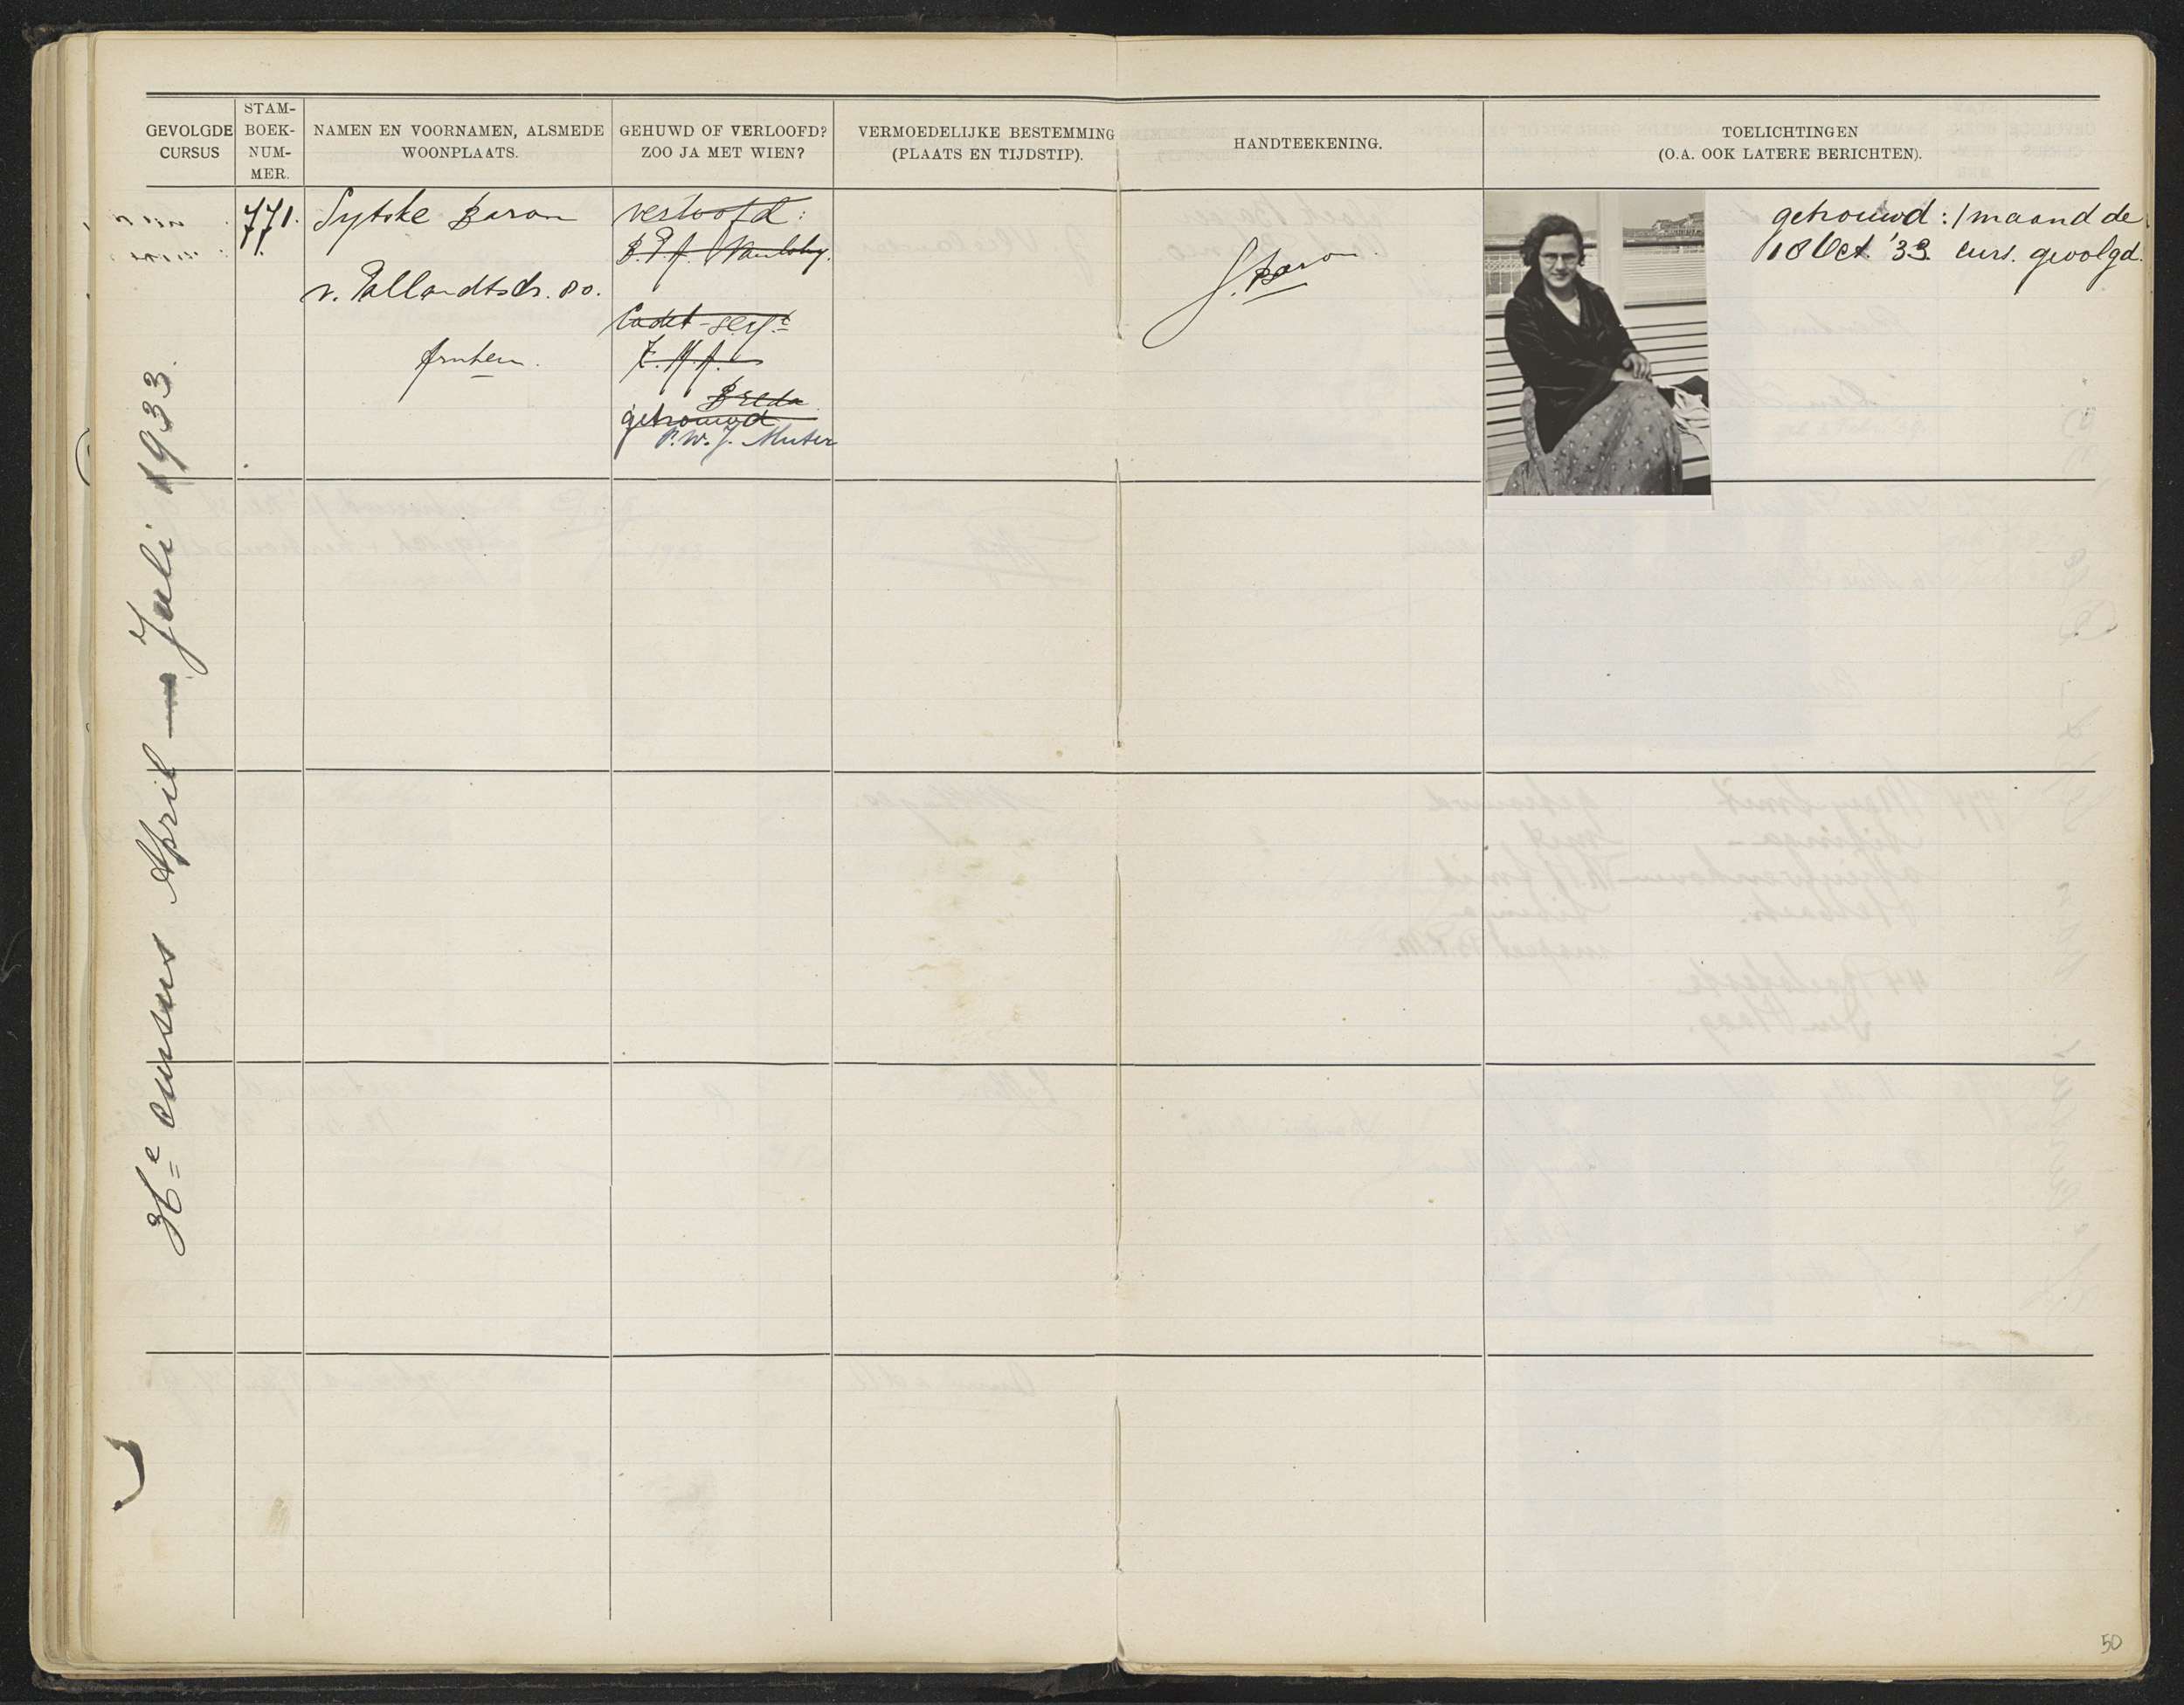 GEVOLGDE CURSUS
STAM-BOEK-NUM-MER.
NAMEN EN VOORNAMEN, ALSMEDE WOONPLAATS.
GEHUWD OF VERLOOFD? ZOO JA MET WIEN?
VERMOEDELIJKE BESTEMMING (PLAATS EN TIJDSTIP).
HANDTEEKENING.
TOELICHTINGEN (O.A. OOK LATERE BERICHTEN).
He cursus April — Juli 1933.
771.
Sytske Baron
v. Pallandtstr. 80.
Arnhem.
verloofd:
Cadet-sergt
K.M.A.
Breda
getrouwd
P.W.J.
S. Baron.
getrouwd: 1 maand de
18 Oct. '33 curs. gevolgd.
50